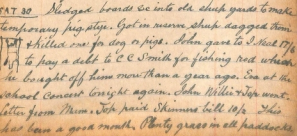 SAT 30 Sledged boards &c into old sheep yards to make
temporary pig stye. Got in reserve sheep dagged them
+ killed one for dog or pigs. John gave to I. Neal 17/6
to pay a debt to C C Smith for fishing rod which
he bought off him more than a year ago. Eva at the
School Concert tonight again. John Willie + Top went.
letter from Mum. Top paid Skinners bill 10/2 This
has been a good month, Plenty grass in all paddocks